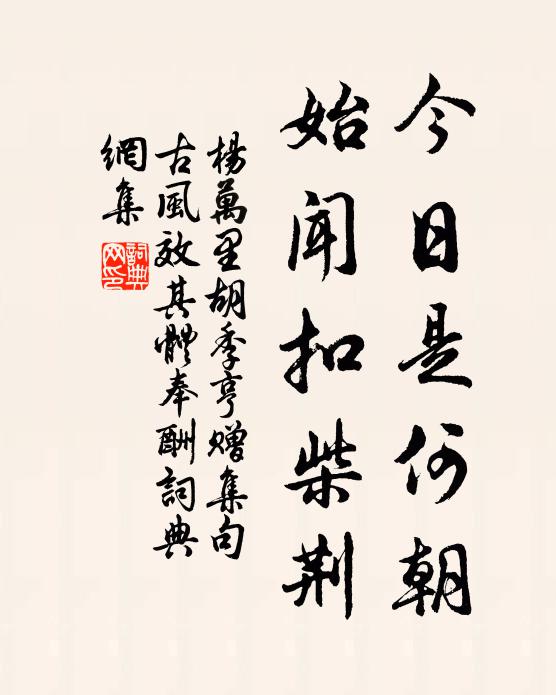 今日是何朝
始聞扣柴荆
楊萬里胡季亨贈集句
古風效其體奉酬詞典
網集
詞典網印